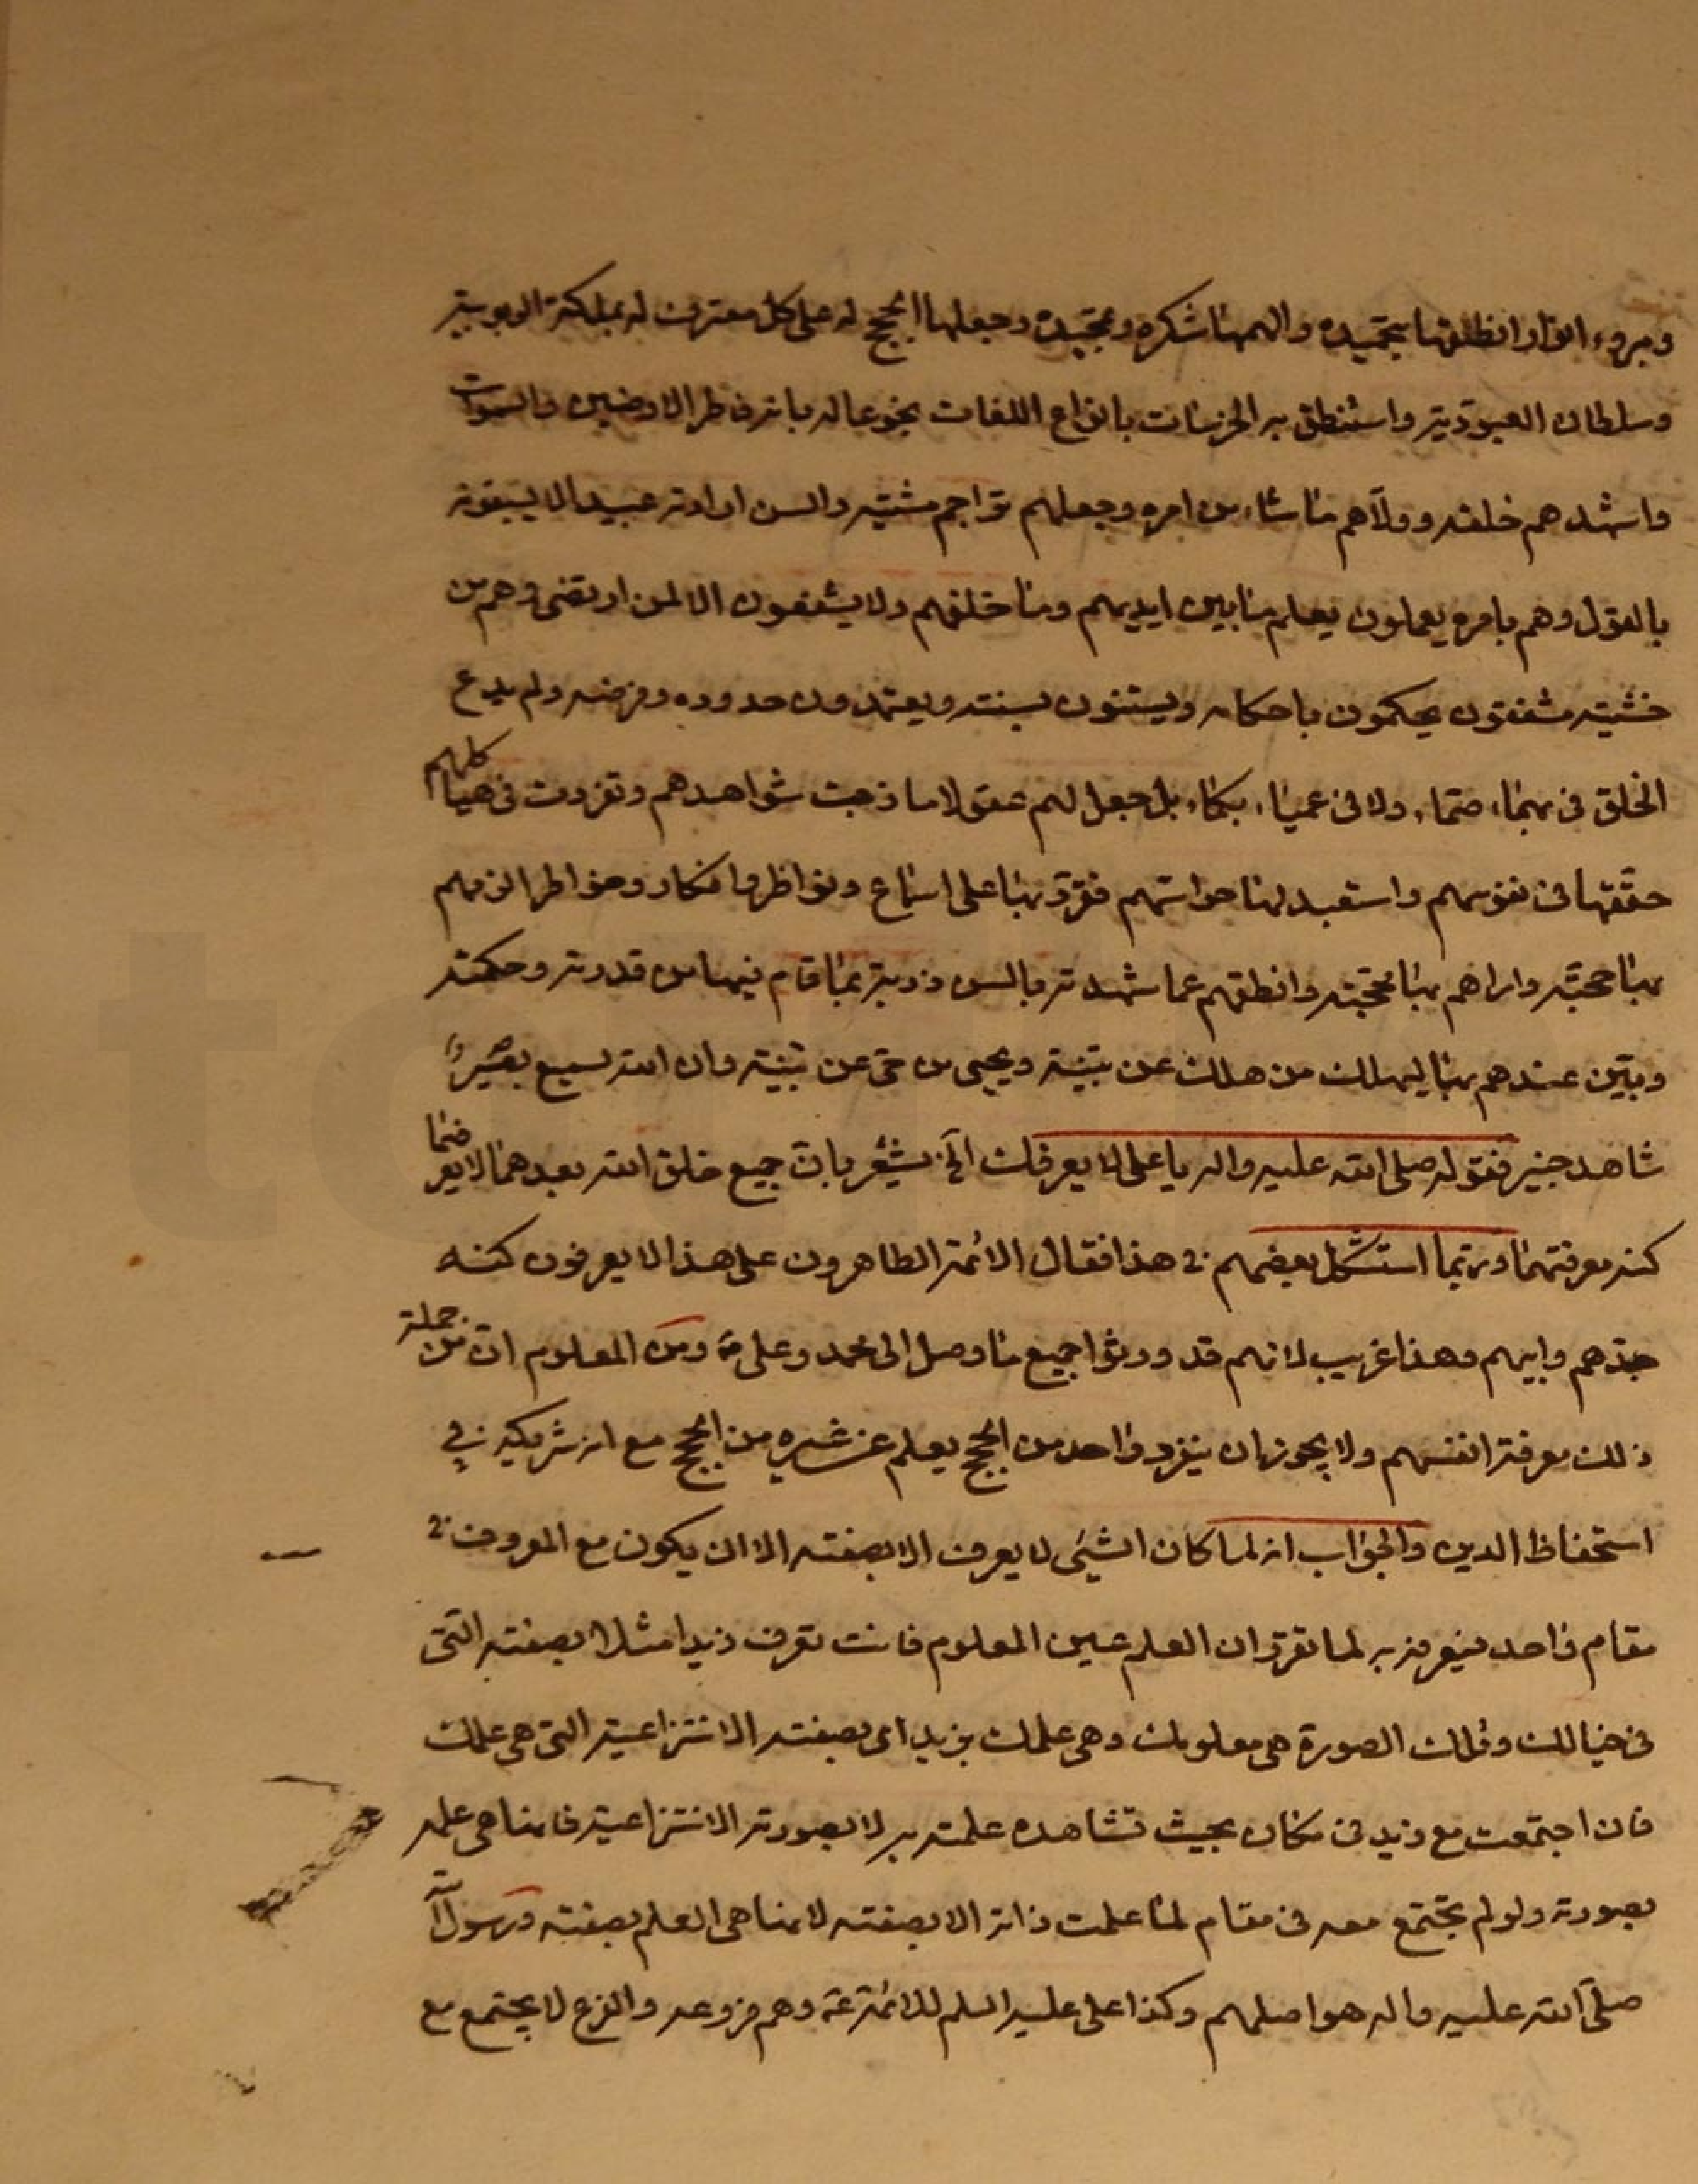 وبروء انوار انطلقها بتحميده والهمها شكره وتمجيده وجعلها الحجج له على كل معترف له بملكة الربوبية
وسلطان العبودية واستنطق به الخرسات بانواع اللغات بخوعا له بانه فاطر الارضين والسموات
واشهدهم خلقه وولاهم ما شاء من امره وجعلهم تراجم مشيته والسن ارادته عبيدا لا يسبقونه
بالقول وهم بامره يعملون يعلم ما بين ايديهم وما خلفهم ولا يشفعون الا لمن ارتضى وهم من
خشيته مشفقون يحكمون باحكامه ويستنون بسنته ويعتمدون حدوده وفرضه ولم يدع
الخلق في بهماء صماء ولا في عمياء بكماء بل جعل لهم عقولا مازجت شواهدهم وتفردت في هياكلهم
حققها في نفوسهم واستعبد لها حواسهم فقرر بها على اسماع ونواظر وافكار وخواطر الزمهم
بها حجته واراهم بها محجته وانطقهم عما شهدته بالسن ذربة بما قام فيها من قدرته وحكمته
وبين عندهم بها ليهلك من هلك عن بينة ويحيى من حى عن بينة وان الله لسميع بصير
شاهد خبير فقوله صلى الله عليه واله يا على لا يعرفك الخ يشعر بان جميع خلق الله بعدهما لا يعرفهما
كنه معرفتهما وربما استشكل بعضهم في هذا فقال الائمة الطاهرون على هذا لا يعرفون كنه
جدهم وابيهم وهذا غريب لانهم قد ورثوا جميع ما وصل الى محمد وعلى ومن المعلوم ان من جملة
ذلك معرفة انفسهم ولا يجوز ان ينفرد واحد من الحجج يعلم عن غيره من الحجج مع انه شريكه في
استحفاظ الدين والجواب انه لما كان الشئ لا يعرف الا بصفته الا ان يكون مع المعروف في
مقام واحد فيعرفه به لما تقرر ان العلم عين المعلوم فانت تعرف زيدا مثلا بصفته التي
في خيالك وتلك الصورة هي معلومك وهي علمك بزيد اى بصفته الانتزاعية التي هي علمك
فان اجتمعت مع زيد في مكان بحيث تشاهده علمته به لا بصورته الانتزاعية فانها هي علمه
بصورته ولو لم تجتمع معه في مقام لما علمت ذاته الا بصفته لانها هي العلم بصفته ورسول الله
صلى الله عليه واله هو اصلهم وكذا على عليه السلم للائمة ع وهم فروعه والفرع لا يجتمع مع